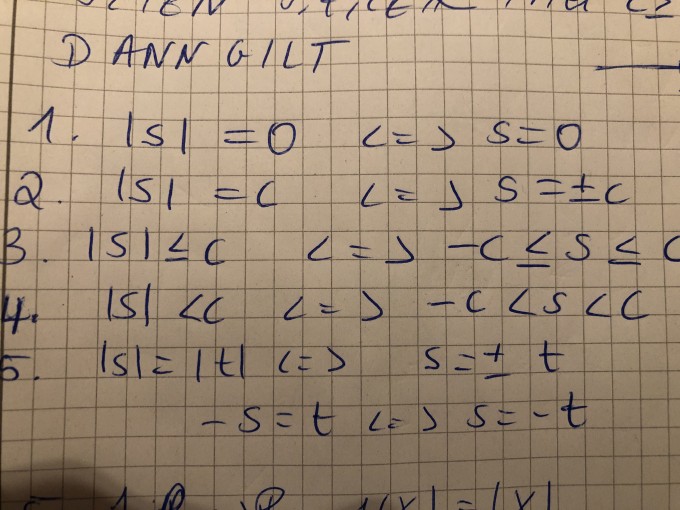 DANN GILT
1. |s| = 0 <=> s = 0
2. |s| = c <=> s = ±c
3. |s| ≤ c <=> -c ≤ s ≤ c
4. |s| < c <=> -c < s < c
5. |s| = |t| <=> s = ± t
-s = t <=> s = -t